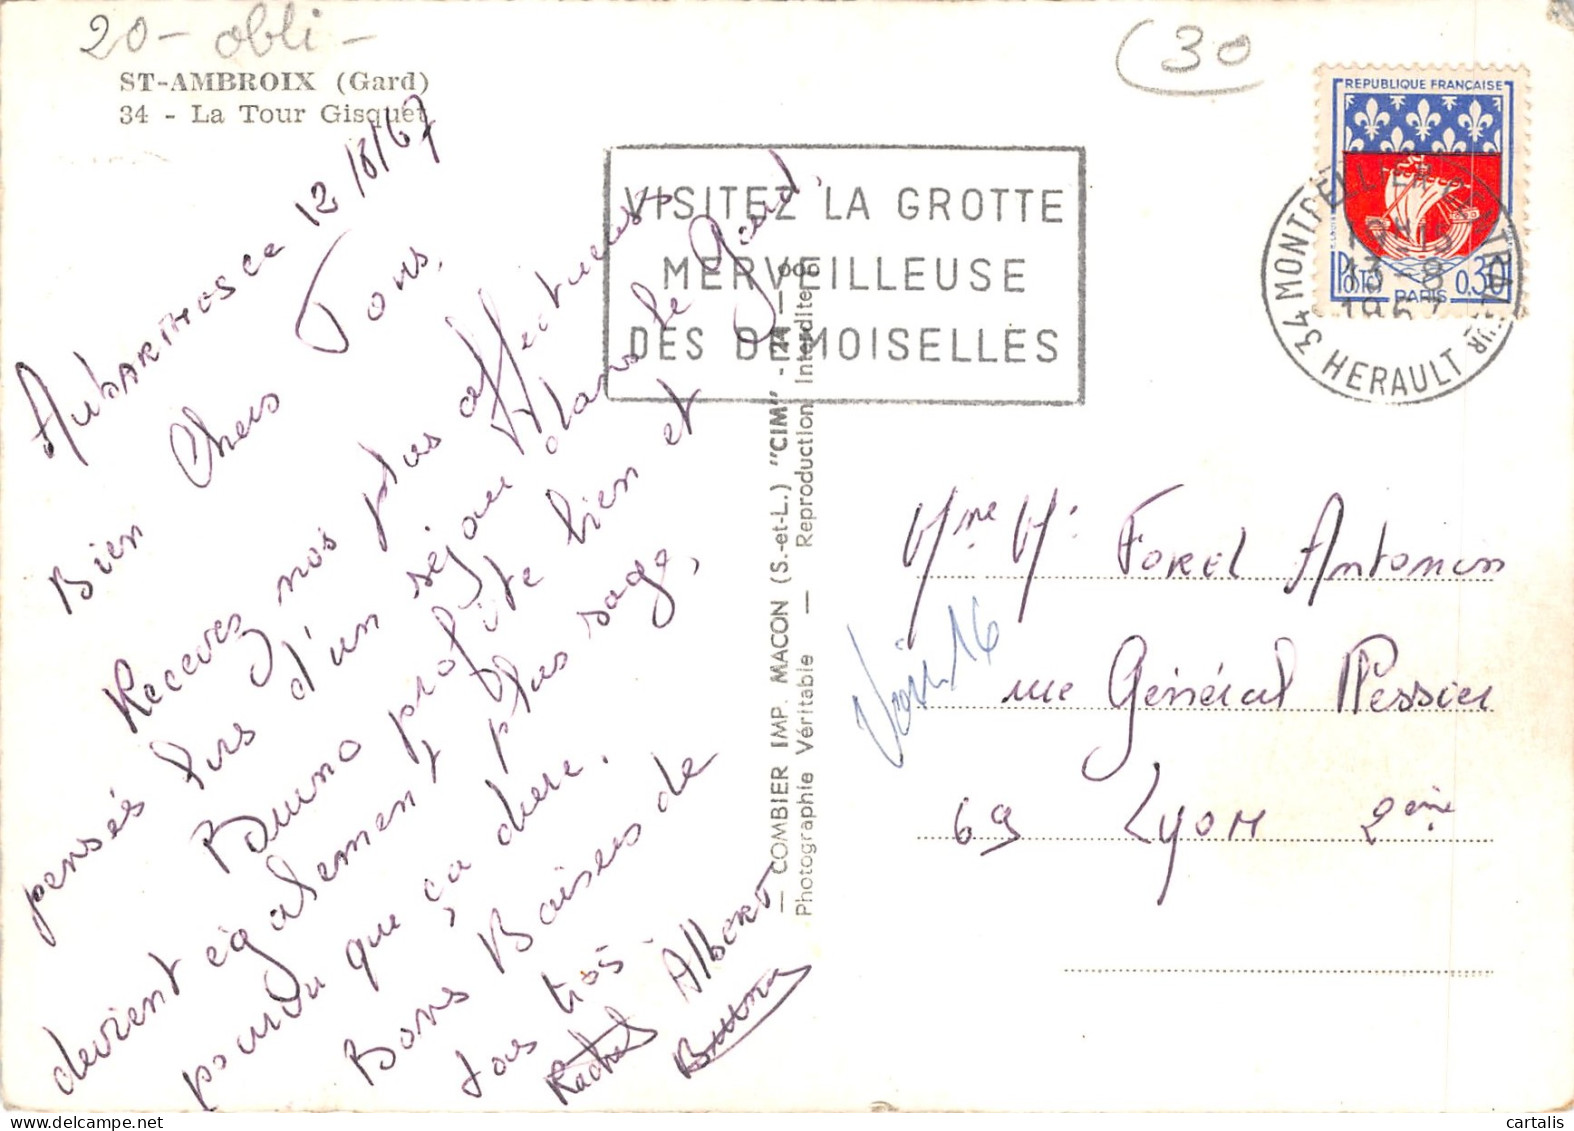 20 - obli -
ST-AMBROIX (Gard)
34 - La Tour Gisquet
12/8/67
Bien Chers Tous,
Recevez nos plus affectueuses
pensés lors d'un séjour dans le Gard.
Bruno profite bien et
devient également plus sage,
pourvu que ça dure.
Bons Baisers de
tous trois -
Rachel Albert
Bruno
— COMBIER IMP. MACON (S.-et-L.) "CIM" -
Photographie Véritable — Reproduction Interdite
(30
VISITEZ LA GROTTE
MERVEILLEUSE
DES DEMOISELLES
REPUBLIQUE FRANÇAISE
POSTES 0.30
PARIS
34 MONTPELLIER CENTRAL
13-8
1967
HERAULT
Mme M. Forel Antonin
rue Général Plessier
69 Lyon 2ème